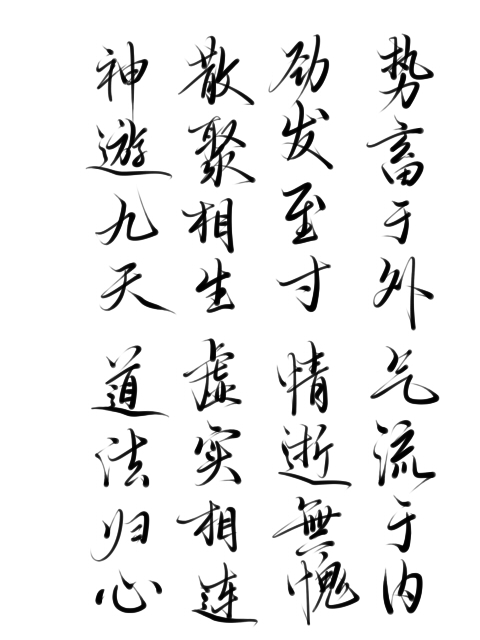 势畜于外气流于内
劲发至寸情逝無愧
散聚相生虚实相连
神遊九天道法归心